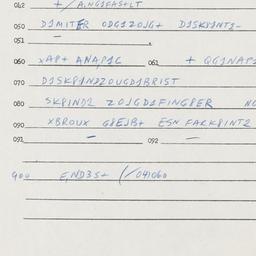 042 + / A,NG1FAS+LT
050 D1MIT8R ODG1ZOJG+ D1SK81NT1-
051 —
060 xAP+ ANAP1C 061 + QG1NAP1
070 D1SK81ND2ZOUGD1BRIST
080 SK81ND2 ZOJGD1FING8ER NG
090 xBROUX G8EJB+ ESN FARK81NT2
091 — 092 —
900 E,ND3S+ (/041060